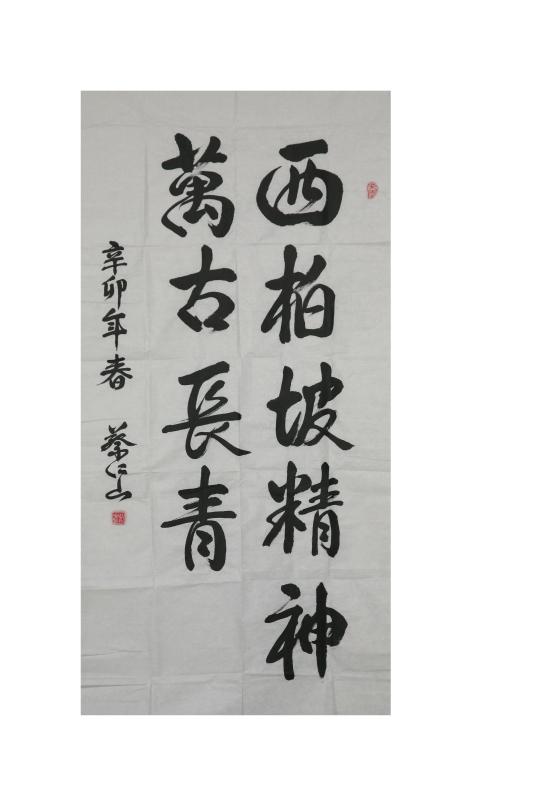 西柏坡精神
萬古長青
辛卯年春 蔡仁山